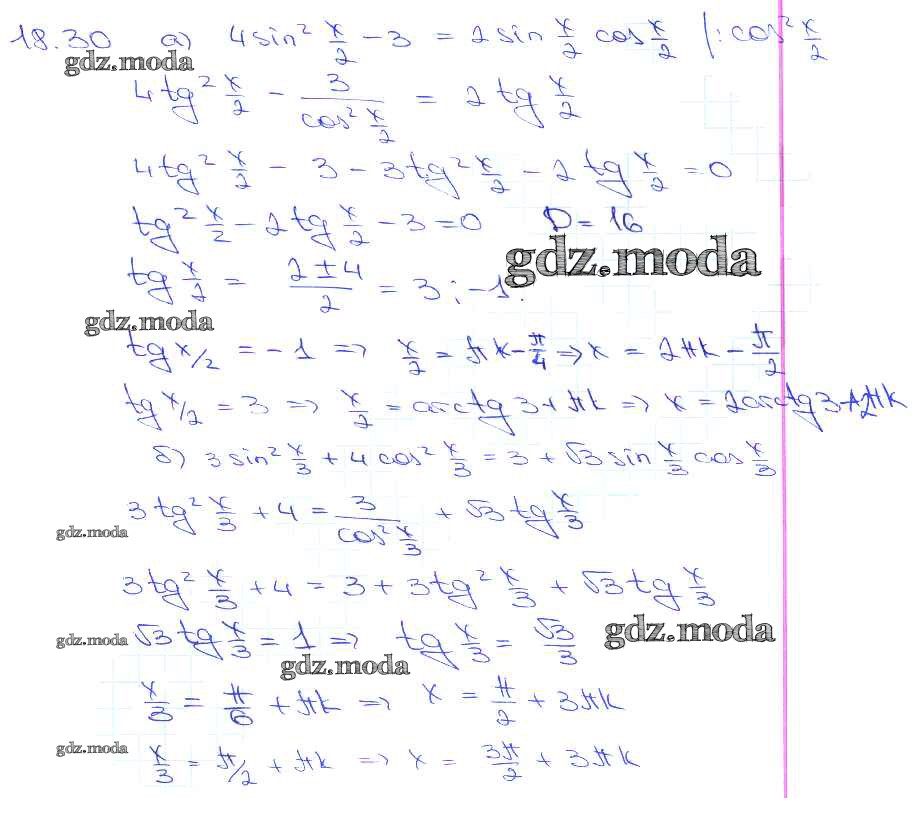 18.30 а) 4sin² x/2 - 3 = 2sin x/2 cos x/2 |:cos² x/2
gdz.moda
4tg² x/2 - 3/(cos² x/2) = 2tg x/2
4tg² x/2 - 3 - 3tg² x/2 - 2tg x/2 = 0
tg² x/2 - 2tg x/2 - 3 = 0 D = 16
gdz.moda
tg x/2 = (2±4)/2 = 3; -1.
gdz.moda
tg x/2 = -1 => x/2 = πk - π/4 => x = 2πk - π/2
tg x/2 = 3 => x/2 = arctg 3 + πk => x = 2arctg 3 + 2πk
б) 3sin² x/3 + 4cos² x/3 = 3 + √3 sin x/3 cos x/3
3tg² x/3 + 4 = 3/(cos² x/3) + √3 tg x/3
gdz.moda
3tg² x/3 + 4 = 3 + 3tg² x/3 + √3 tg x/3
gdz.moda √3 tg x/3 = 1 => tg x/3 = √3/3 gdz.moda
gdz.moda
x/3 = π/6 + πk => x = π/2 + 3πk
gdz.moda
x/3 = π/2 + πk => x = 3π/2 + 3πk